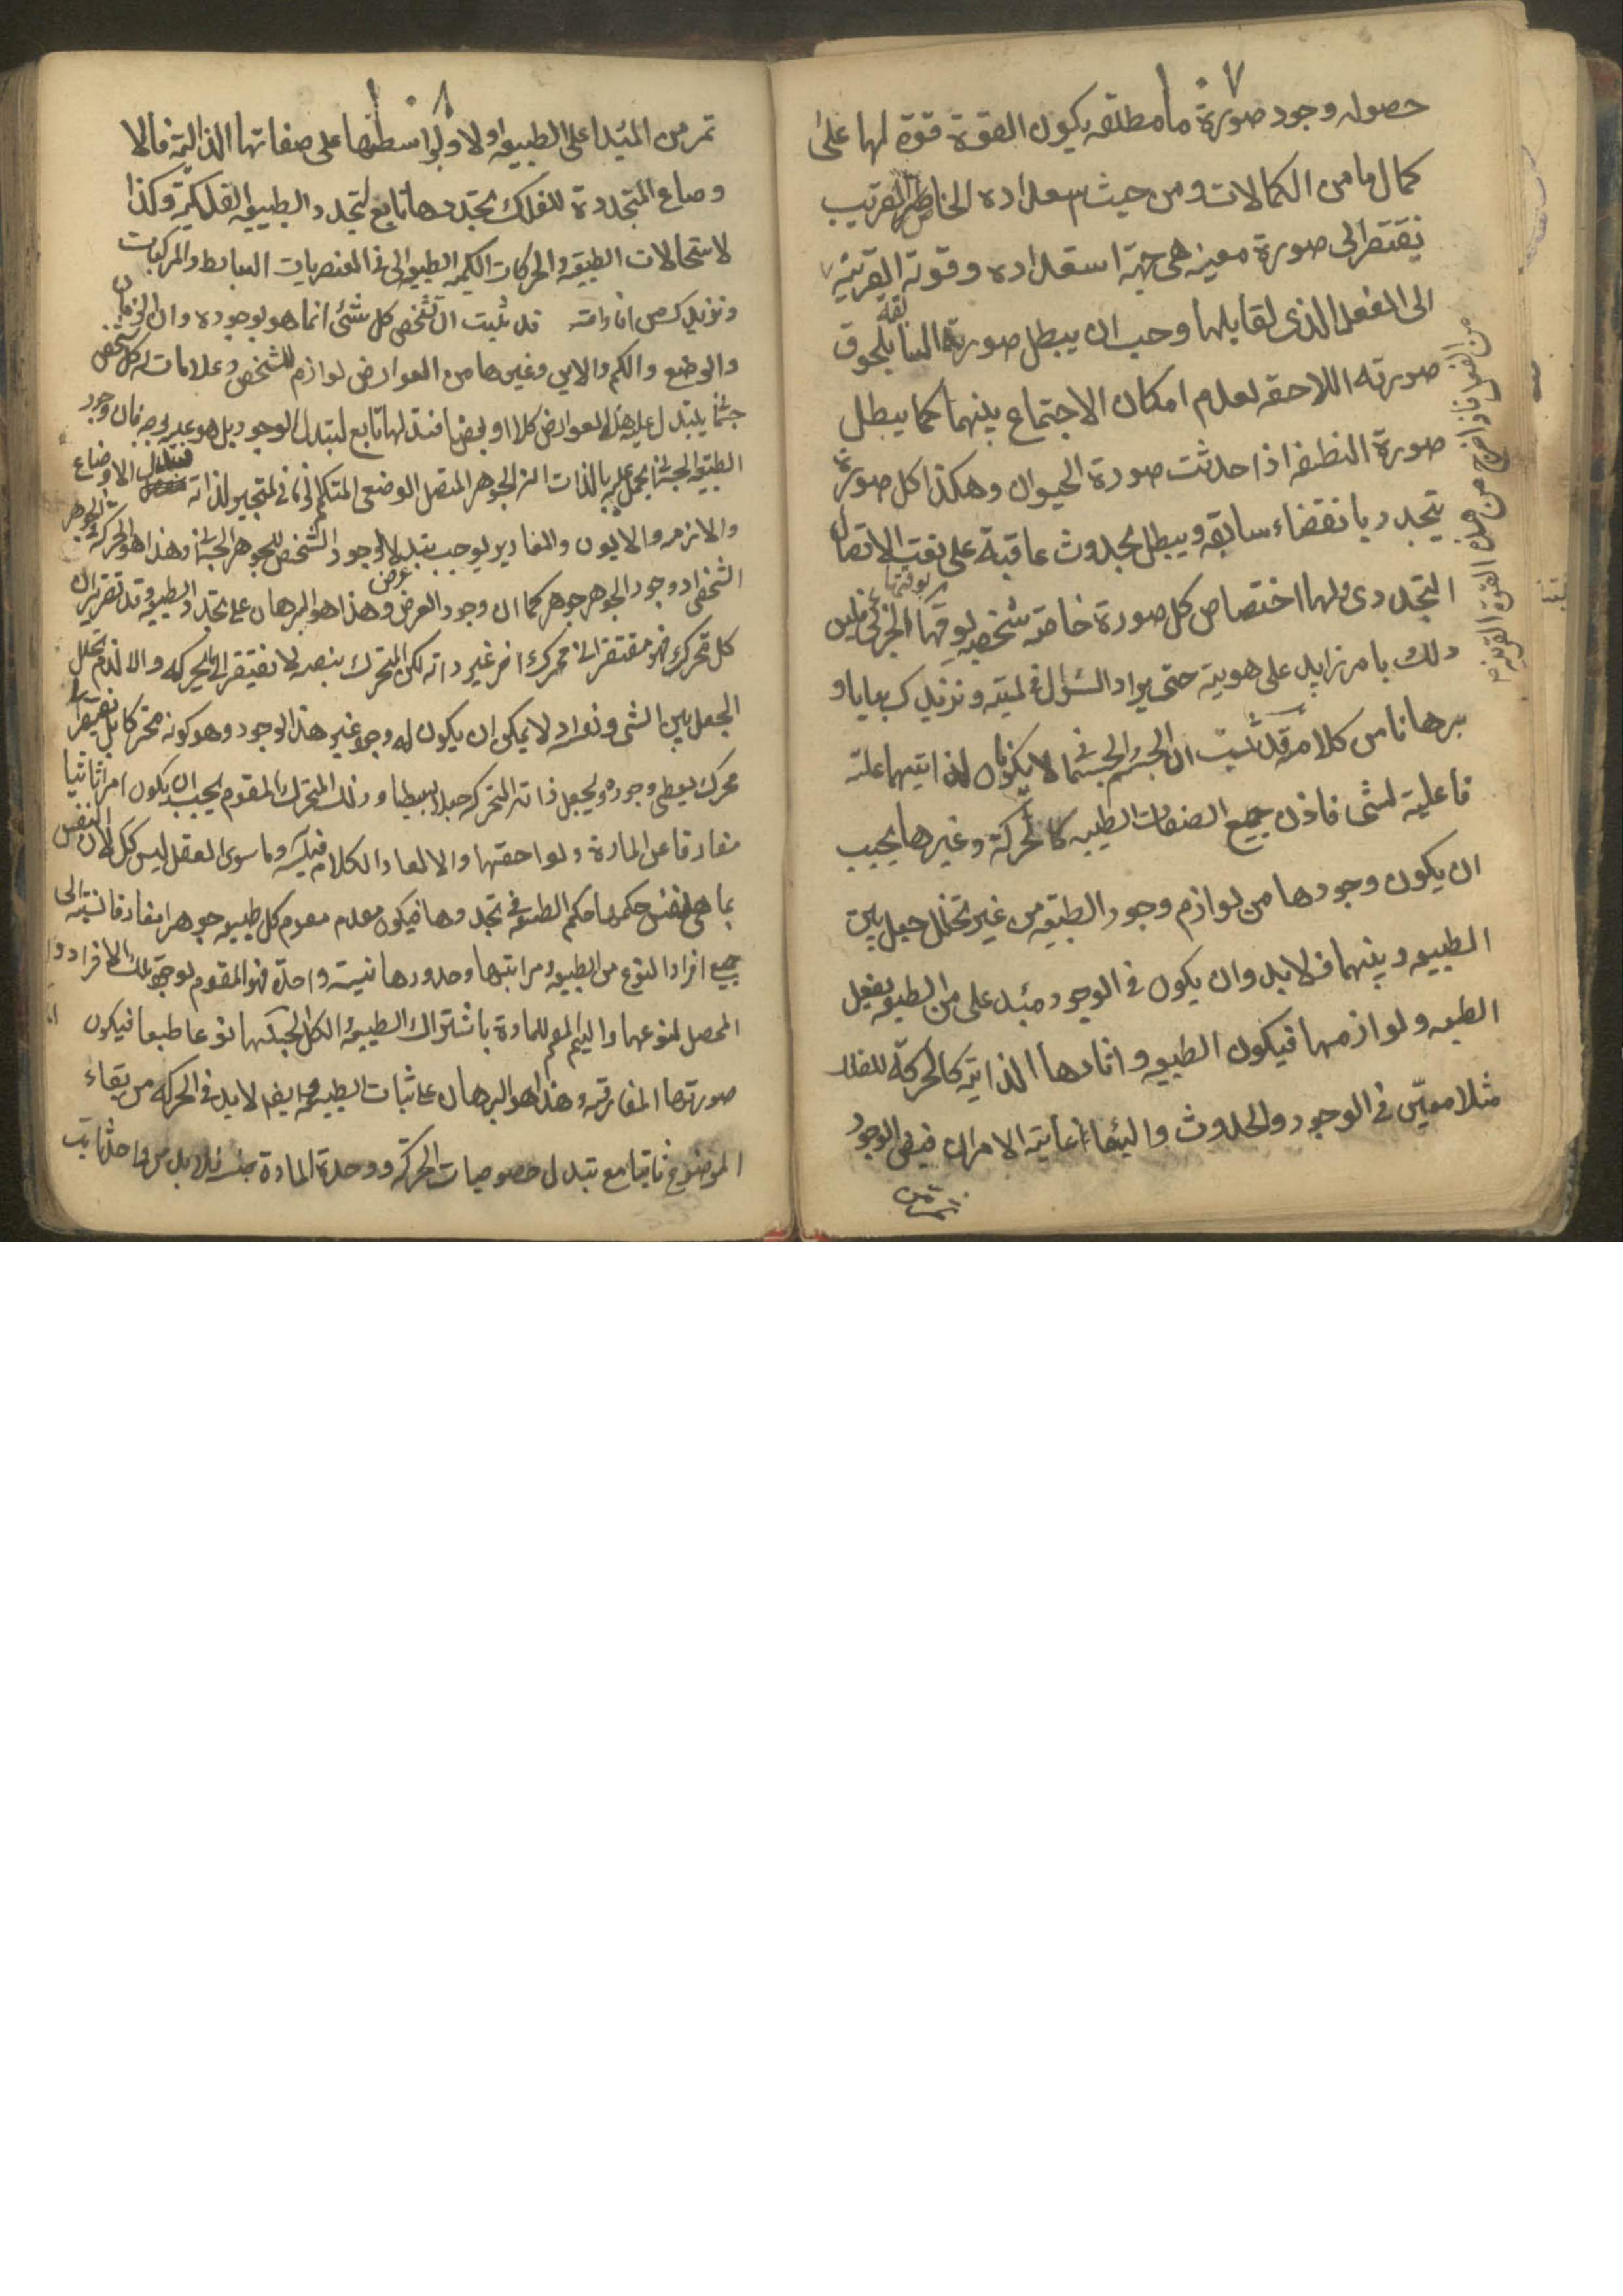 ١٠٧
حصوله وجود صورة ما مطلقه يكون القوة قوة لها على
كمال ما من الكمالات ومن حيث استعداده الخاص القريب
يفتقر الى صورة معينه هى جهة استعداده وقوته القريبة
الى الفعل الذى لقابلها وجب ان يبطل صورته السابقه بلحوق
صورته اللاحقه لعدم امكان الاجتماع بينهما كما يبطل
صورة النطفه اذا حدثت صورة الحيوان وهكذا كل صورة
يتجدد بانقضاء سابقه ويبطل بحدوث عاقبة على نعت الاتصال
التجددى ولهما اختصاص كل صورة خاصه شخصيه بوقتها الجزئى فليس
ذلك بامر زايد على هويته حتى يراد السؤال فى لميته ونزيدك بيانا و
برهانا من كلامه قد ثبت ان الجسم والجسمانى لا يكون لذاتيهما علة
فاعلية لشى فاذن جميع الصفات الطبيعيه كالحركة وغيرها يجب
ان يكون وجودها من لوازم وجود الطبيعه من غير تخلل جعل بين
الطبيعه وبينهما فلابد وان يكون فى الوجود مبدء على من الطبيعه يفعل
الطبعه ولوازمها فيكون الطبيعه واثارها الذاتيه كالحركة للفلك
مثلا معيّن فى الوجود والحدوث والبقاء غاية الامر ان فيض الوجود
من الفعل فاذا خرج من هذه القوة القريبه
١٠٨
تمر من المبدا على الطبيعه اولا وبواسطتها على صفاتها الذاتيه فالا
وضاع المتجددة للفلك تجددها تابع لتجدد الطبيعه الفلكيه وكذا
لاستحالات الطبيعيه والحركات الكميه الطبيعيه الى فى العنصريات البسايط والمركبات
ونزيدك قد ثبت ان تشخص كل شئ انما هو بوجوده وان الزمان
والوضع والكم والاين وغيرها من العوارض لوازم للشخص وعلامات له كل شخص
جسمانى يتبدل عليه هذه العوارض كلا او بعضا فتبدلها تابع لتبدل الوجود بل هو عينه بوجه فان وجود
الطبيعه الجسمانيه يحمل عليه بالذات انه الجوهر المتصل الوضعى المتكمم الزمانى المتحيز لذاته فتبدل الاوضاع
والازمنه والالوان والمقادير يوجب تبدل الوجود الشخصى للجوهر الجسمانى وهذا هو الحركة فى الجوهر
الشخصى اذ وجود الجوهر جوهر كما ان وجود العرض عرض وهذا هو البرهان على تجدد الطبيعه وقد تقرر ان
كل متحرك فهو مفتقر الى محرك اخر غير ذاته لكن المتحرك بنفسه لا يفتقر الى الحركة والا لزم تخلل
الجعل بين الشى ونفسه لا يمكن ان يكون له وجود غير هذا الوجود وهو كونه متحركا بل يفتقر الى
محرك يعطى وجوده ويجعل ذاته المتحركه جعلا بسيطا وذلك المتحرك المقوم يجب ان يكون امرا ثابتا
مفارقا عن المادة ولواحقها والا لعاد الكلام فيه وما سوى العقل ليس كك لان النفس
بما هى نفس حكمها حكم الطبيعه فى تجددها فيكون مقوم كل طبيعه جوهرا مفارقا نسبته الى
جميع افراد النوع من الطبيعه ومراتبها وحدودها نسبه واحدة فهو المقوم لوجود تلك الافراد و
المحصل لنوعها والمقيم للمادة باشتراك الطبيعه الكل بحسبها نوعا طبعا فيكون
صورتها المفارقه وهذا هو البرهان على ثبات الطبيعه وايضا لابد فى الحركه من بقاء
الموضوع ثابتا مع تبدل خصوصيات الحركة ووحدة المادة جنسية فلابد من واحد ثابت